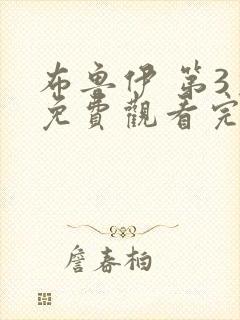 布魯伊 第3
免費觀看完
詹春柏